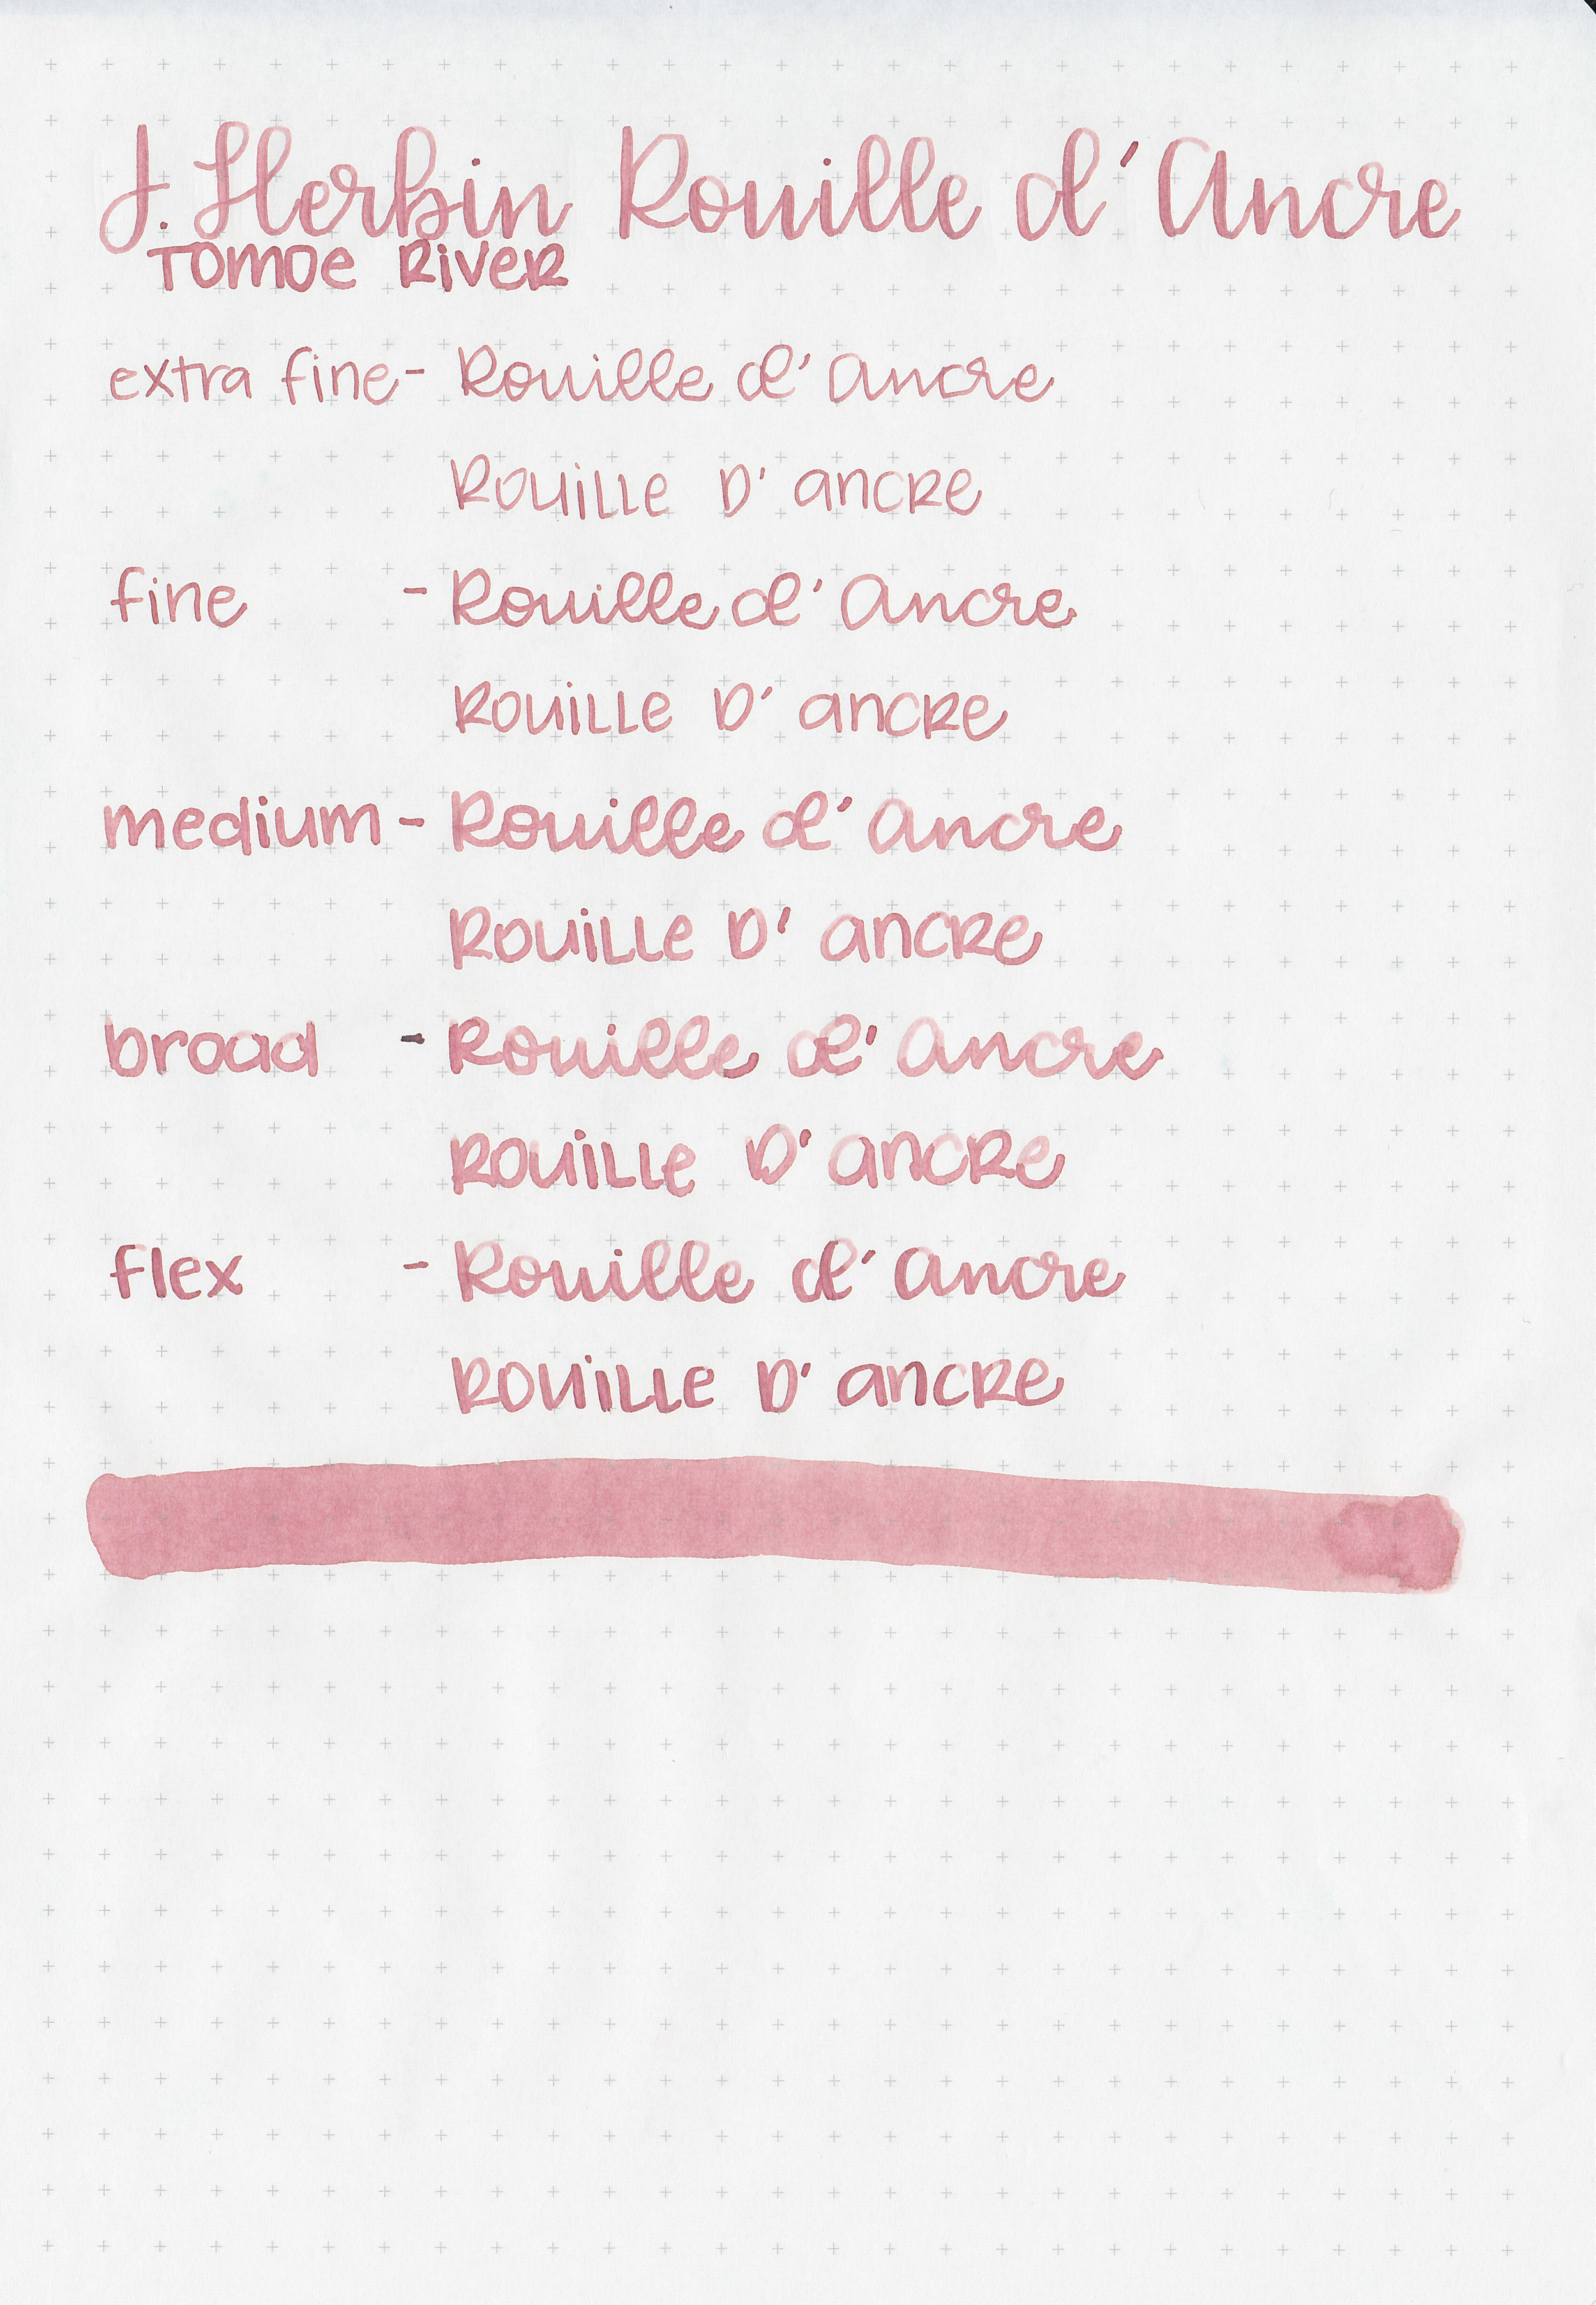 J. Herbin Rouille d'Ancre
TOMOE RIVER
extra fine - Rouille d'Ancre
ROUILLE D' ANCRE
fine - Rouille d'Ancre
ROUILLE D' ANCRE
medium - Rouille d'Ancre
ROUILLE D' ANCRE
broad - Rouille d'Ancre
ROUILLE D' ANCRE
flex - Rouille d'Ancre
ROUILLE D' ANCRE